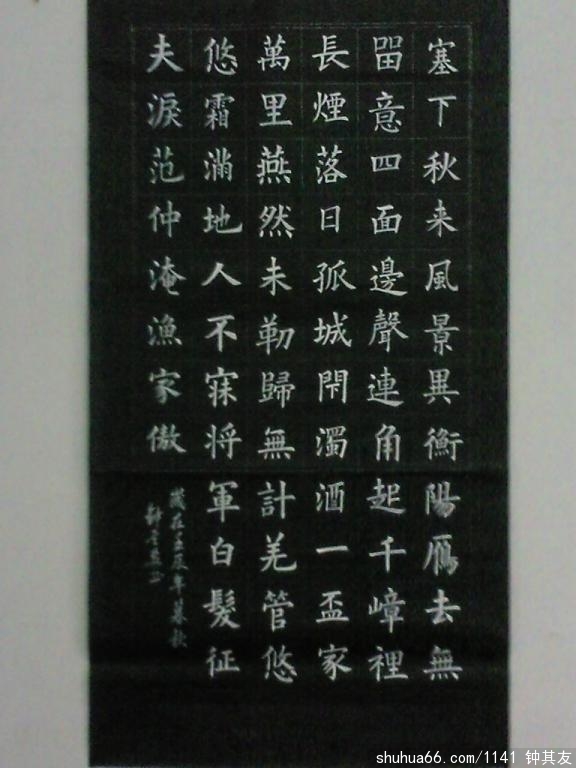 塞下秋来風景異衡陽鴈去無
畱意四面邊聲連角起千嶂裡
長煙落日孤城閇濁酒一盃家
萬里燕然未勒歸無計羌管悠
悠霜滿地人不寐将軍白髮征
夫淚范仲淹漁家傲
歲在壬辰年暮秋
shuhua66.com/1141 钟其友